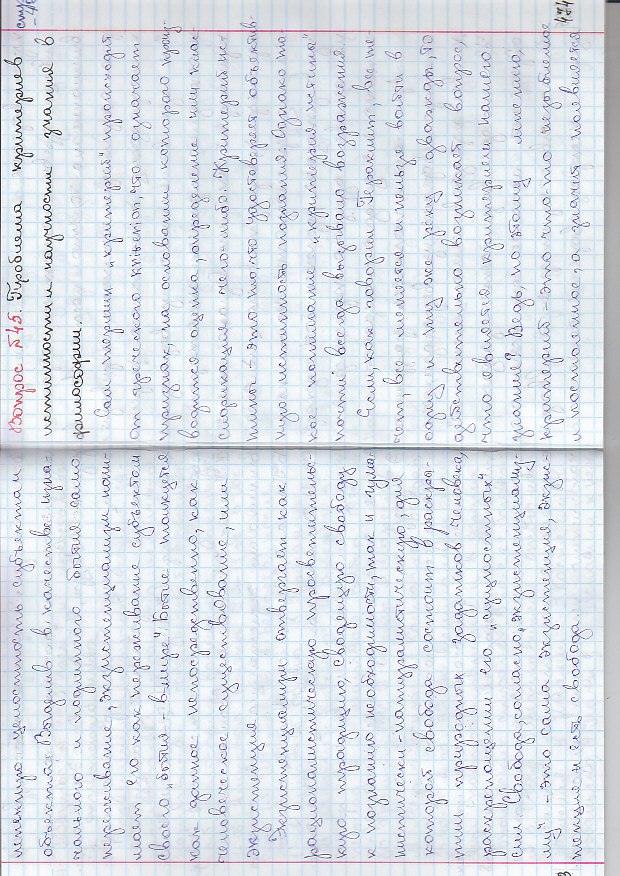 целостность субъекта и
объекта. Выделив в качестве изна-
чального и подлинного бытия само
переживание, экзистенциализм пони-
мает его как переживание субъектом
своего „бытия-в-мире". Бытие толкуется
как данное непосредственно, как
человеческое существование, или
экзистенция
Экзистенциализм отвергает как
рационалистическую просветительс-
кую традицию, сводящую свободу
к познанию необходимости, так и гума-
нистически-натуралистическую, для
которой свобода состоит в раскры-
тии природных задатков человека,
раскрепощении его „сущностных"
сил. Свобода, согласно „экзистенциализ-
му" - это сама экзистенция, экзис-
тенция и есть свобода.
Вопрос №45. Проблема критериев
истинности и научности знания в
философии.
Сам термин „критерий" происходит
от греческого kriterion, что означает
признак, на основании которого произ-
водится оценка, определение или клас-
сификация чего-либо. "Критерий ис-
тины" - это то, что удостоверяет объектив
ную истинность познания. Однако та-
кое понимание „критерия истины"
почти всегда вызывало возражения.
Если, как говорил Гераклит, все те-
чет, все меняется и нельзя войти в
одну и ту же реку дважды, то
действительно возникает вопрос,
что является критерием нашего
знания? Ведь, по этому мнению,
критерий - это что-то незыблемое
и постоянное, а значит появляется
474